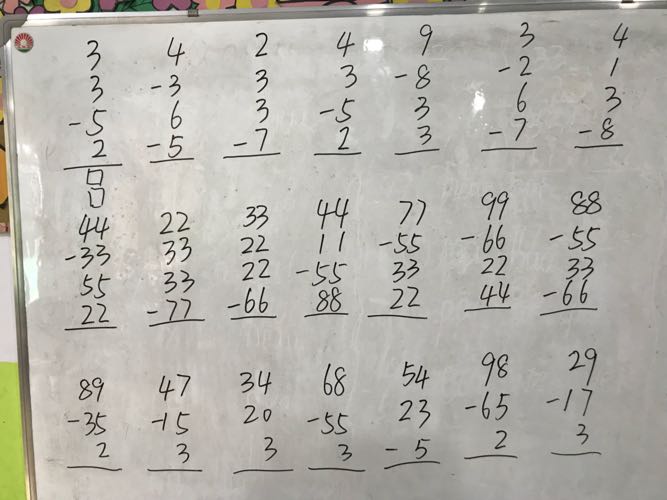 3 4 2 4 9 3 4
3 -3 3 3 -8 -2 1
-5 6 3 -5 3 6 3
2 -5 -7 2 3 -7 -8
44 22 33 44 77 99 88
-33 33 22 11 -55 -66 -55
55 33 22 -55 33 22 33
22 -77 -66 88 22 44 -66
89 47 34 68 54 98 29
-35 -15 20 -55 23 -65 -17
2 3 3 3 -5 2 3